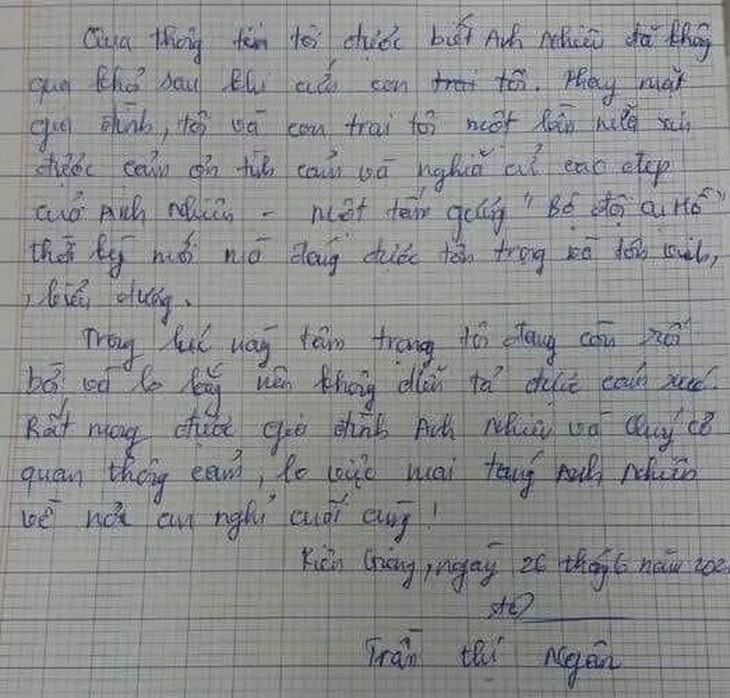 Qua thông tin tôi được biết Anh Nhiên đã không
qua khỏi sau khi cứu con trai tôi. Thay mặt
gia đình, tôi và con trai tôi một lần nữa xin
được cảm ơn tình cảm và nghĩa cử cao đẹp
của Anh Nhiên - một tấm gương "Bộ đội Cụ Hồ"
thời kỳ mới nó đáng được tôn trọng và tôn vinh,
, biểu dương.
Trong lúc này tâm trạng tôi đang còn rối
bờ và lo lắng nên không diễn tả được cảm xúc.
Rất mong được gia đình Anh Nhiên và Quý cơ
quan thông cảm, lo việc mai táng Anh Nhiên
về nơi an nghỉ cuối cùng!
Kiên Giang, ngày 26 tháng 6 năm 202
Trần Thị Ngân